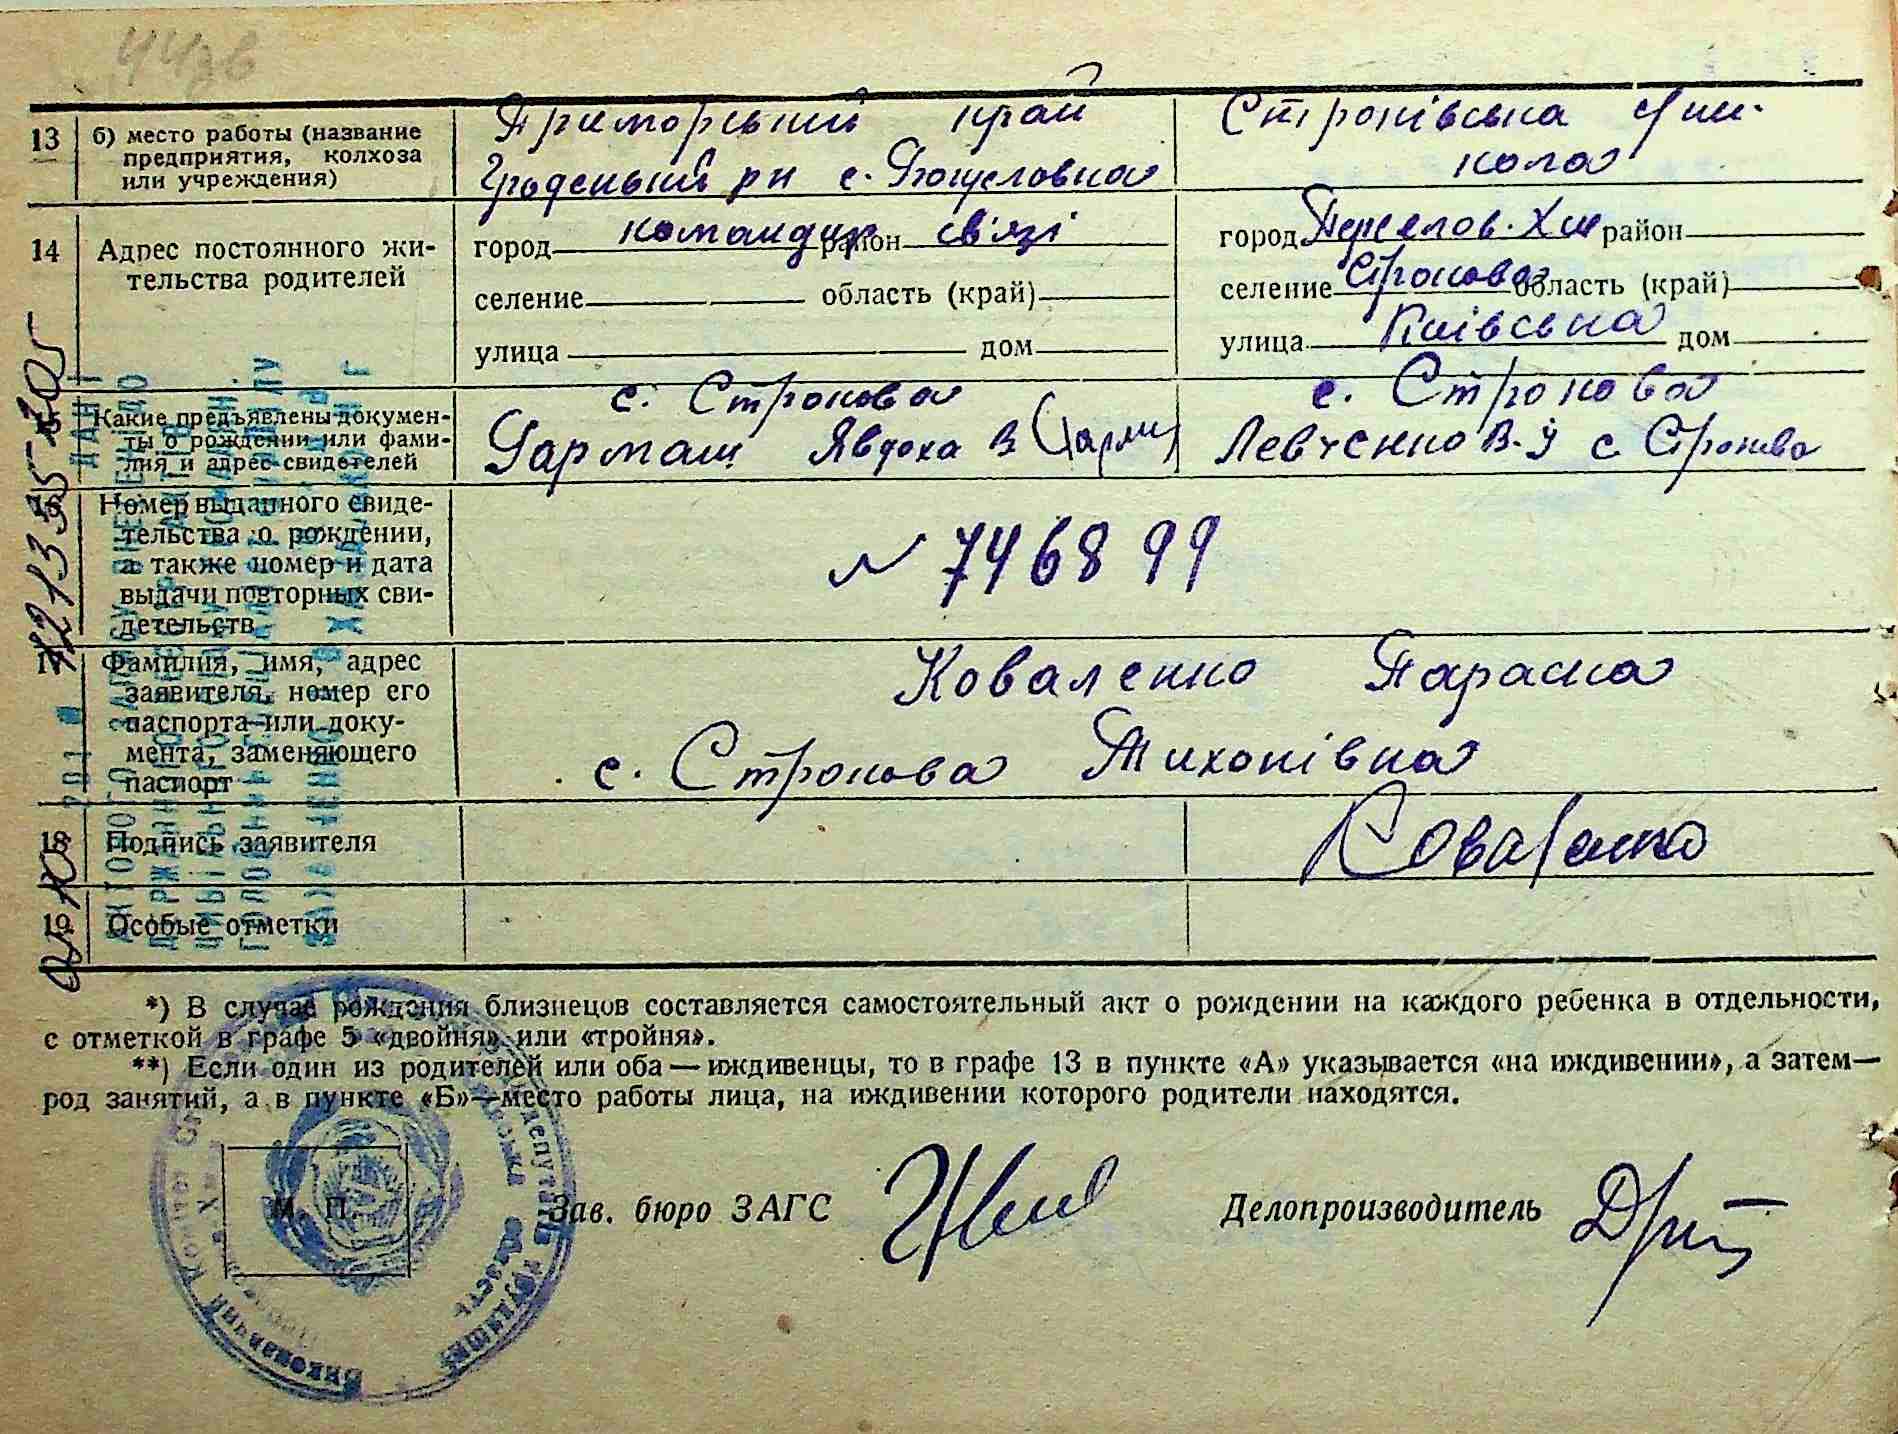 44зв
13 б) место работы (название предприятия, колхоза или учреждения)
Приморський край
рн с. Богуславка
Строківська
школа
14 Адрес постоянного жительства родителей
город командир район связі
селение область (край)
улица дом
город Переялов. Хм район
селение Строкова область (край)
улица Київська дом
15 Какие предъявлены документы о рождении или фамилия и адрес свидетелей
с. Строкова
Цармаш Явдоха В
с. Строкова
Левченко В. У с. Строкова
16 Номер выданного свидетельства о рождении, а также номер и дата выдачи повторных свидетельств
№ 746899
17 Фамилия, имя, адрес заявителя, номер его паспорта или документа, заменяющего паспорт
Коваленко Параска
с. Строкова Тихонівна
18 Подпись заявителя
Коваленко
19 Особые отметки
*) В случае рождения близнецов составляется самостоятельный акт о рождении на каждого ребенка в отдельности,
с отметкой в графе 5 «двойня» или «тройня».
**) Если один из родителей или оба — иждивенцы, то в графе 13 в пункте «А» указывается «на иждивении», а затем—
род занятий, а в пункте «Б»—место работы лица, на иждивении которого родители находятся.
М. П.
Зав. бюро ЗАГС
Делопроизводитель